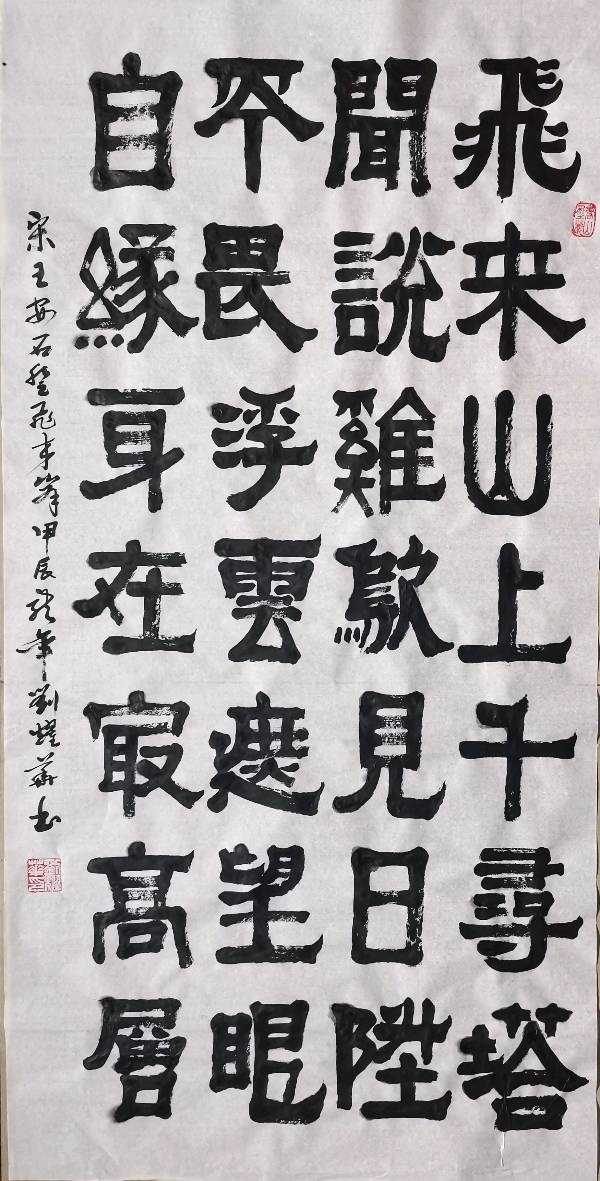 飛来山上千尋塔
聞說雞鳴見日陞
不畏浮雲遮望眼
自緣身在最高層
宋王安石登飛来峯甲辰龙年劉燿華书